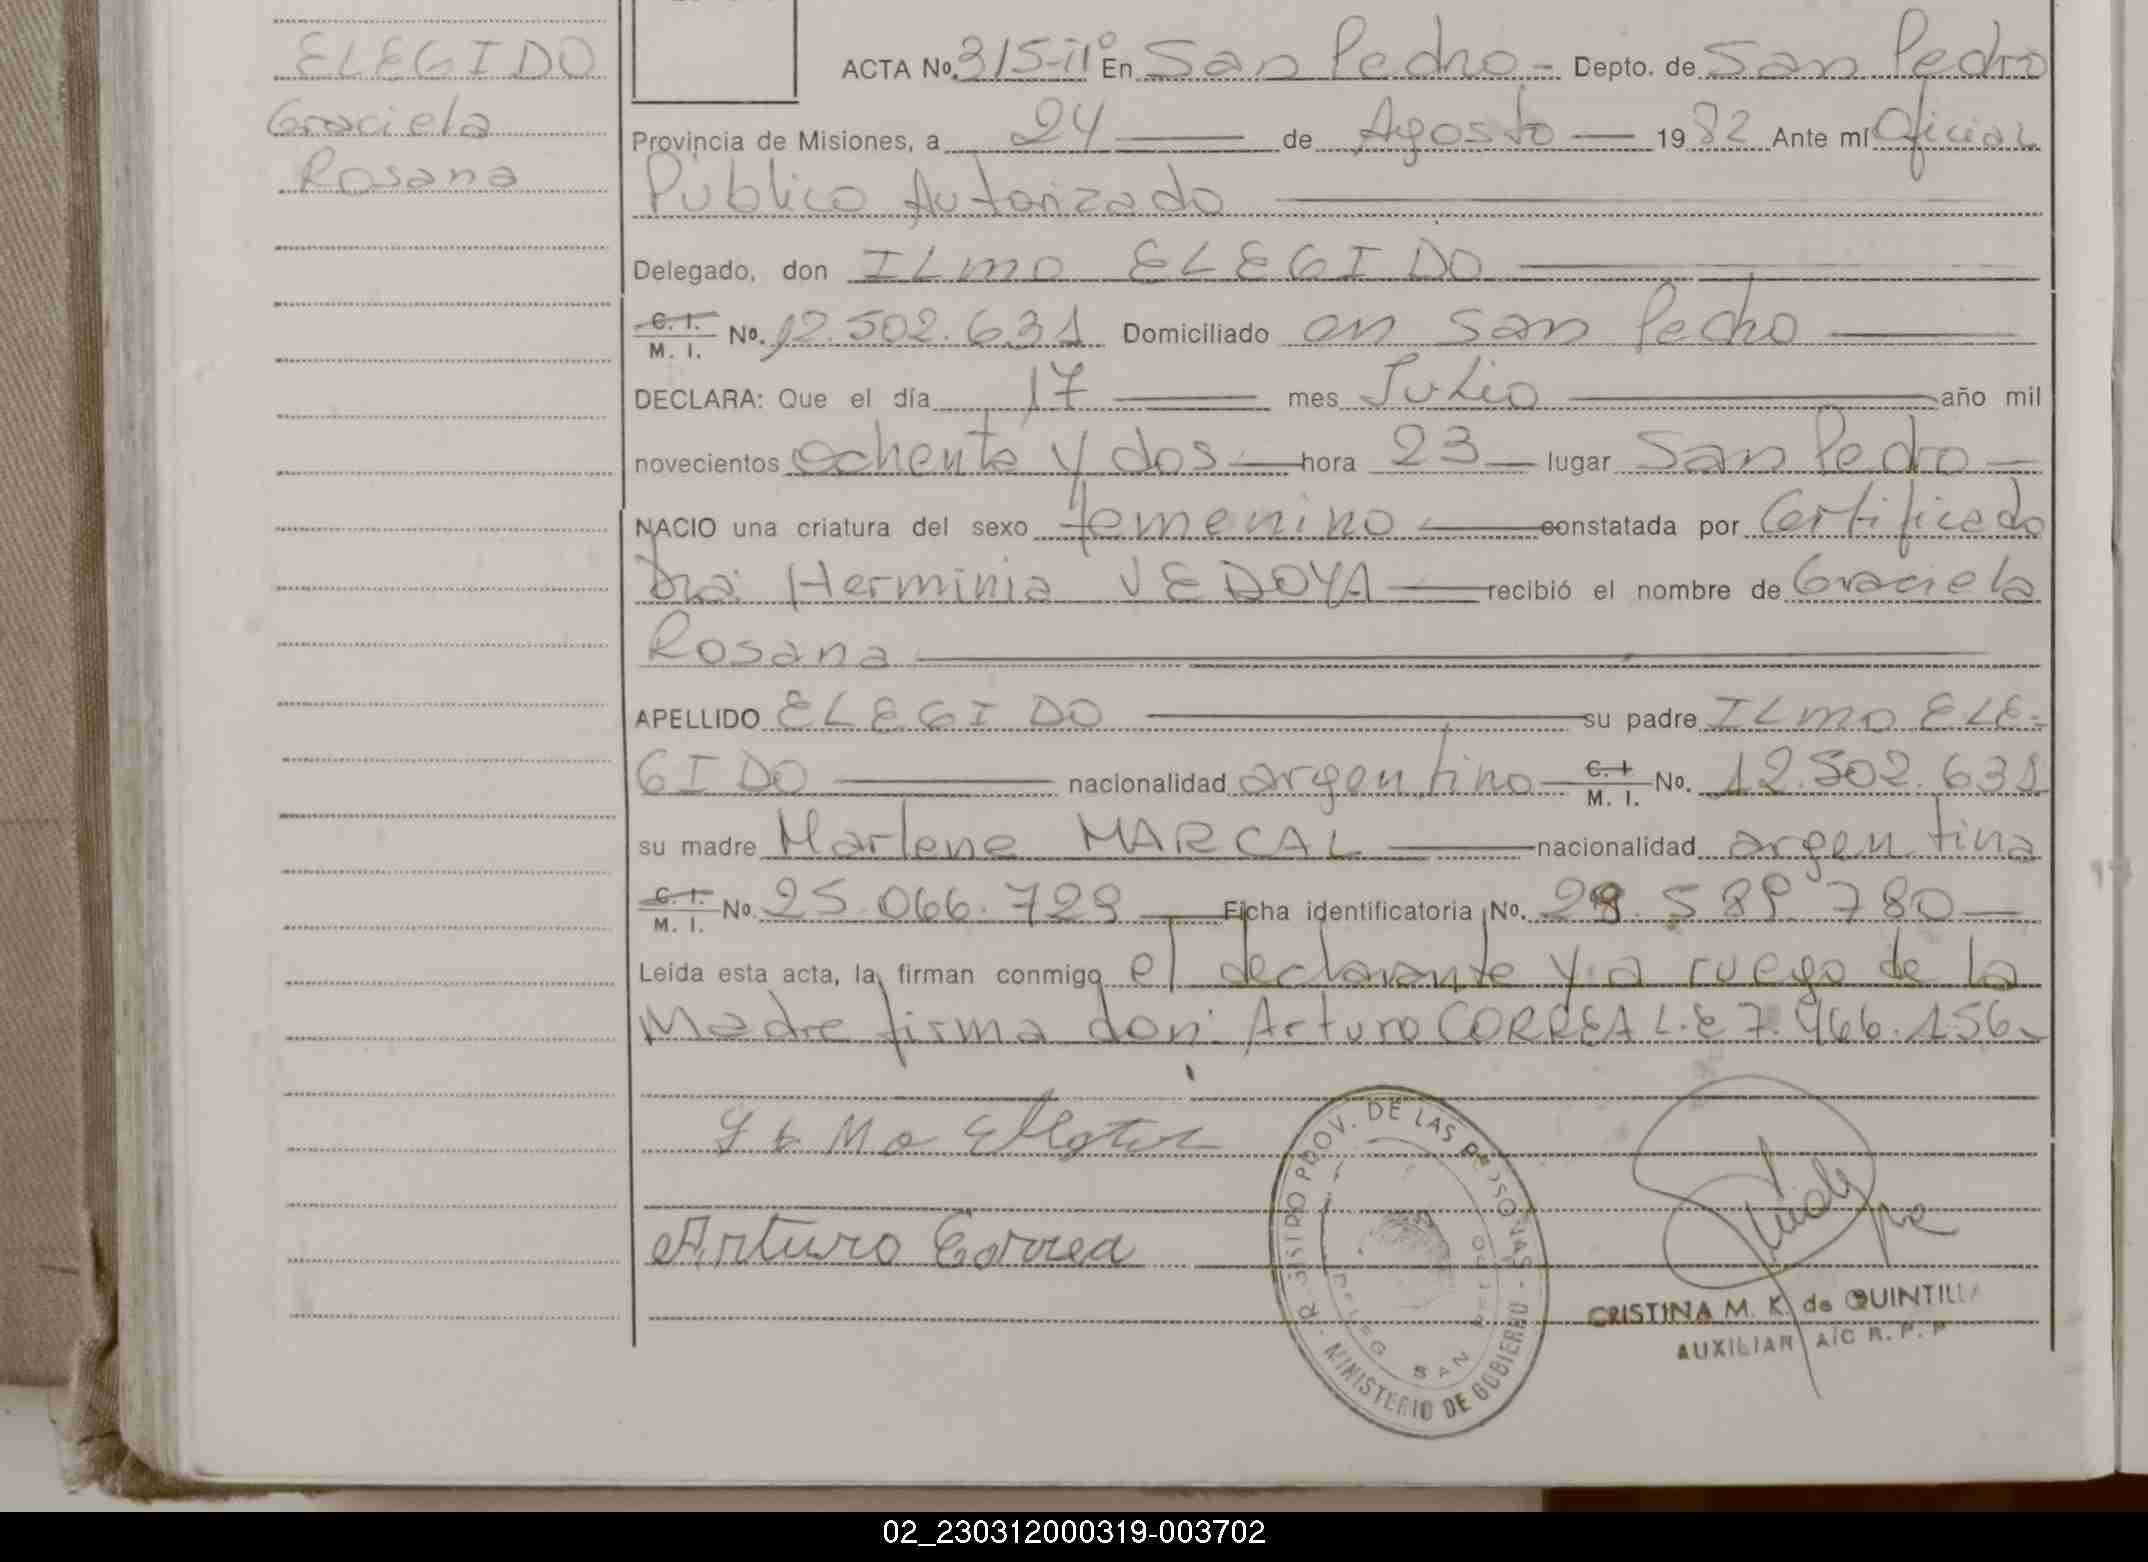 ELEGIDO
Graciela
Rosana
ACTA No. 315-IIº En San Pedro - Depto. de San Pedro
Provincia de Misiones, a 24 de Agosto 1982 Ante mí Oficial
Publico Autorizado
Delegado, don ILMO ELEGIDO
C. I. M. I. No. 12.502.631 Domiciliado en San Pedro
DECLARA: Que el día 17 mes Julio año mil
novecientos ochenta y dos hora 23 lugar San Pedro
NACIO una criatura del sexo femenino constatada por Certificado
Dra: Herminia VEDOYA recibió el nombre de Graciela
Rosana
APELLIDO ELEGIDO su padre ILMO ELE-
GIDO nacionalidad argentino C. I. M. I. No. 12.502.631
su madre Marlene MARCAL nacionalidad argentina
C. I. M. I. No. 25.066.729 Ficha identificatoria No. 29.589.780
Leída esta acta, la firman conmigo el declarante y a ruego de la
Madre firma don: Arturo CORREA L.E 7.466.156.
Arturo Correa
REGISTRO PROV. DE LAS PERSONAS - MINISTERIO DE GOBIERNO
DELEG SAN PEDRO
CRISTINA M. K. de QUINTILLA
AUXILIAR A/C R. P. P
02_230312000319-003702